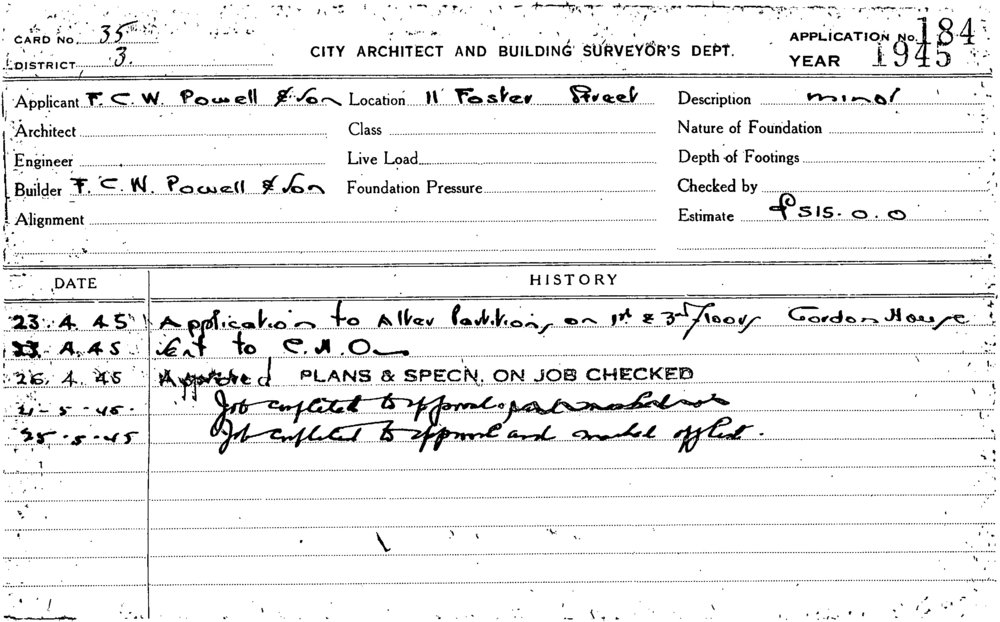 CARD No. 35
DISTRICT 3.
CITY ARCHITECT AND BUILDING SURVEYOR'S DEPT.
APPLICATION No. 184
YEAR 1945
Applicant F. C. W. Powell & Son Location 11 Foster Street Description minor
Architect Class Nature of Foundation
Engineer Live Load Depth of Footings
Builder F. C. W. Powell & Son Foundation Pressure Checked by
Alignment Estimate £515.0.0
DATE HISTORY
23.4.45 Application to Alter Partitions on 1st & 3rd Floors Gordon House
23.4.45 Sent to C.H.O
26.4.45 Approved PLANS & SPECN. ON JOB CHECKED
-5-45. Job completed to approval
25.5.45 Job completed to approval and marked off list.